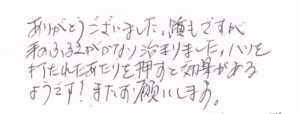 ありがとうございました。瞳もですが
私のふるえがかなり治まりました。ハリを
打たれたあたりを押すと効果がある
ようです!またお願いします。